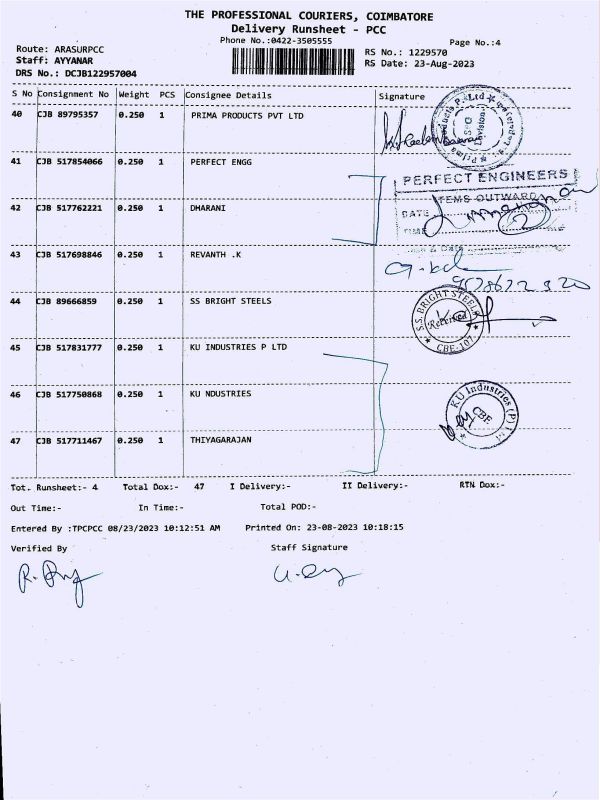 THE PROFESSIONAL COURIERS, COIMBATORE
Delivery Runsheet - PCC
Phone No.:0422-3505555
Page No.:4
Route: ARASURPCC
Staff: AYYANAR
DRS No.: DCJB122957004
RS No.: 1229570
RS Date: 23-Aug-2023
S No Consignment No Weight PCS Consignee Details Signature
40 CJB 89795357 0.250 1 PRIMA PRODUCTS PVT LTD
41 CJB 517854066 0.250 1 PERFECT ENGG
PERFECT ENGINEERS
ITEMS OUTWARD
DATE
TIME
42 CJB 517762221 0.250 1 DHARANI
43 CJB 517698846 0.250 1 REVANTH .K
44 CJB 89666859 0.250 1 SS BRIGHT STEELS
S.S. BRIGHT STEELS
Received
CBE-107
45 CJB 517831777 0.250 1 KU INDUSTRIES P LTD
46 CJB 517750868 0.250 1 KU NDUSTRIES
KU Industries (P)
CBE
47 CJB 517711467 0.250 1 THIYAGARAJAN
Tot. Runsheet:- 4 Total Dox:- 47 I Delivery:- II Delivery:- RTN Dox:-
Out Time:- In Time:- Total POD:-
Entered By :TPCPCC 08/23/2023 10:12:51 AM Printed On: 23-08-2023 10:18:15
Verified By Staff Signature